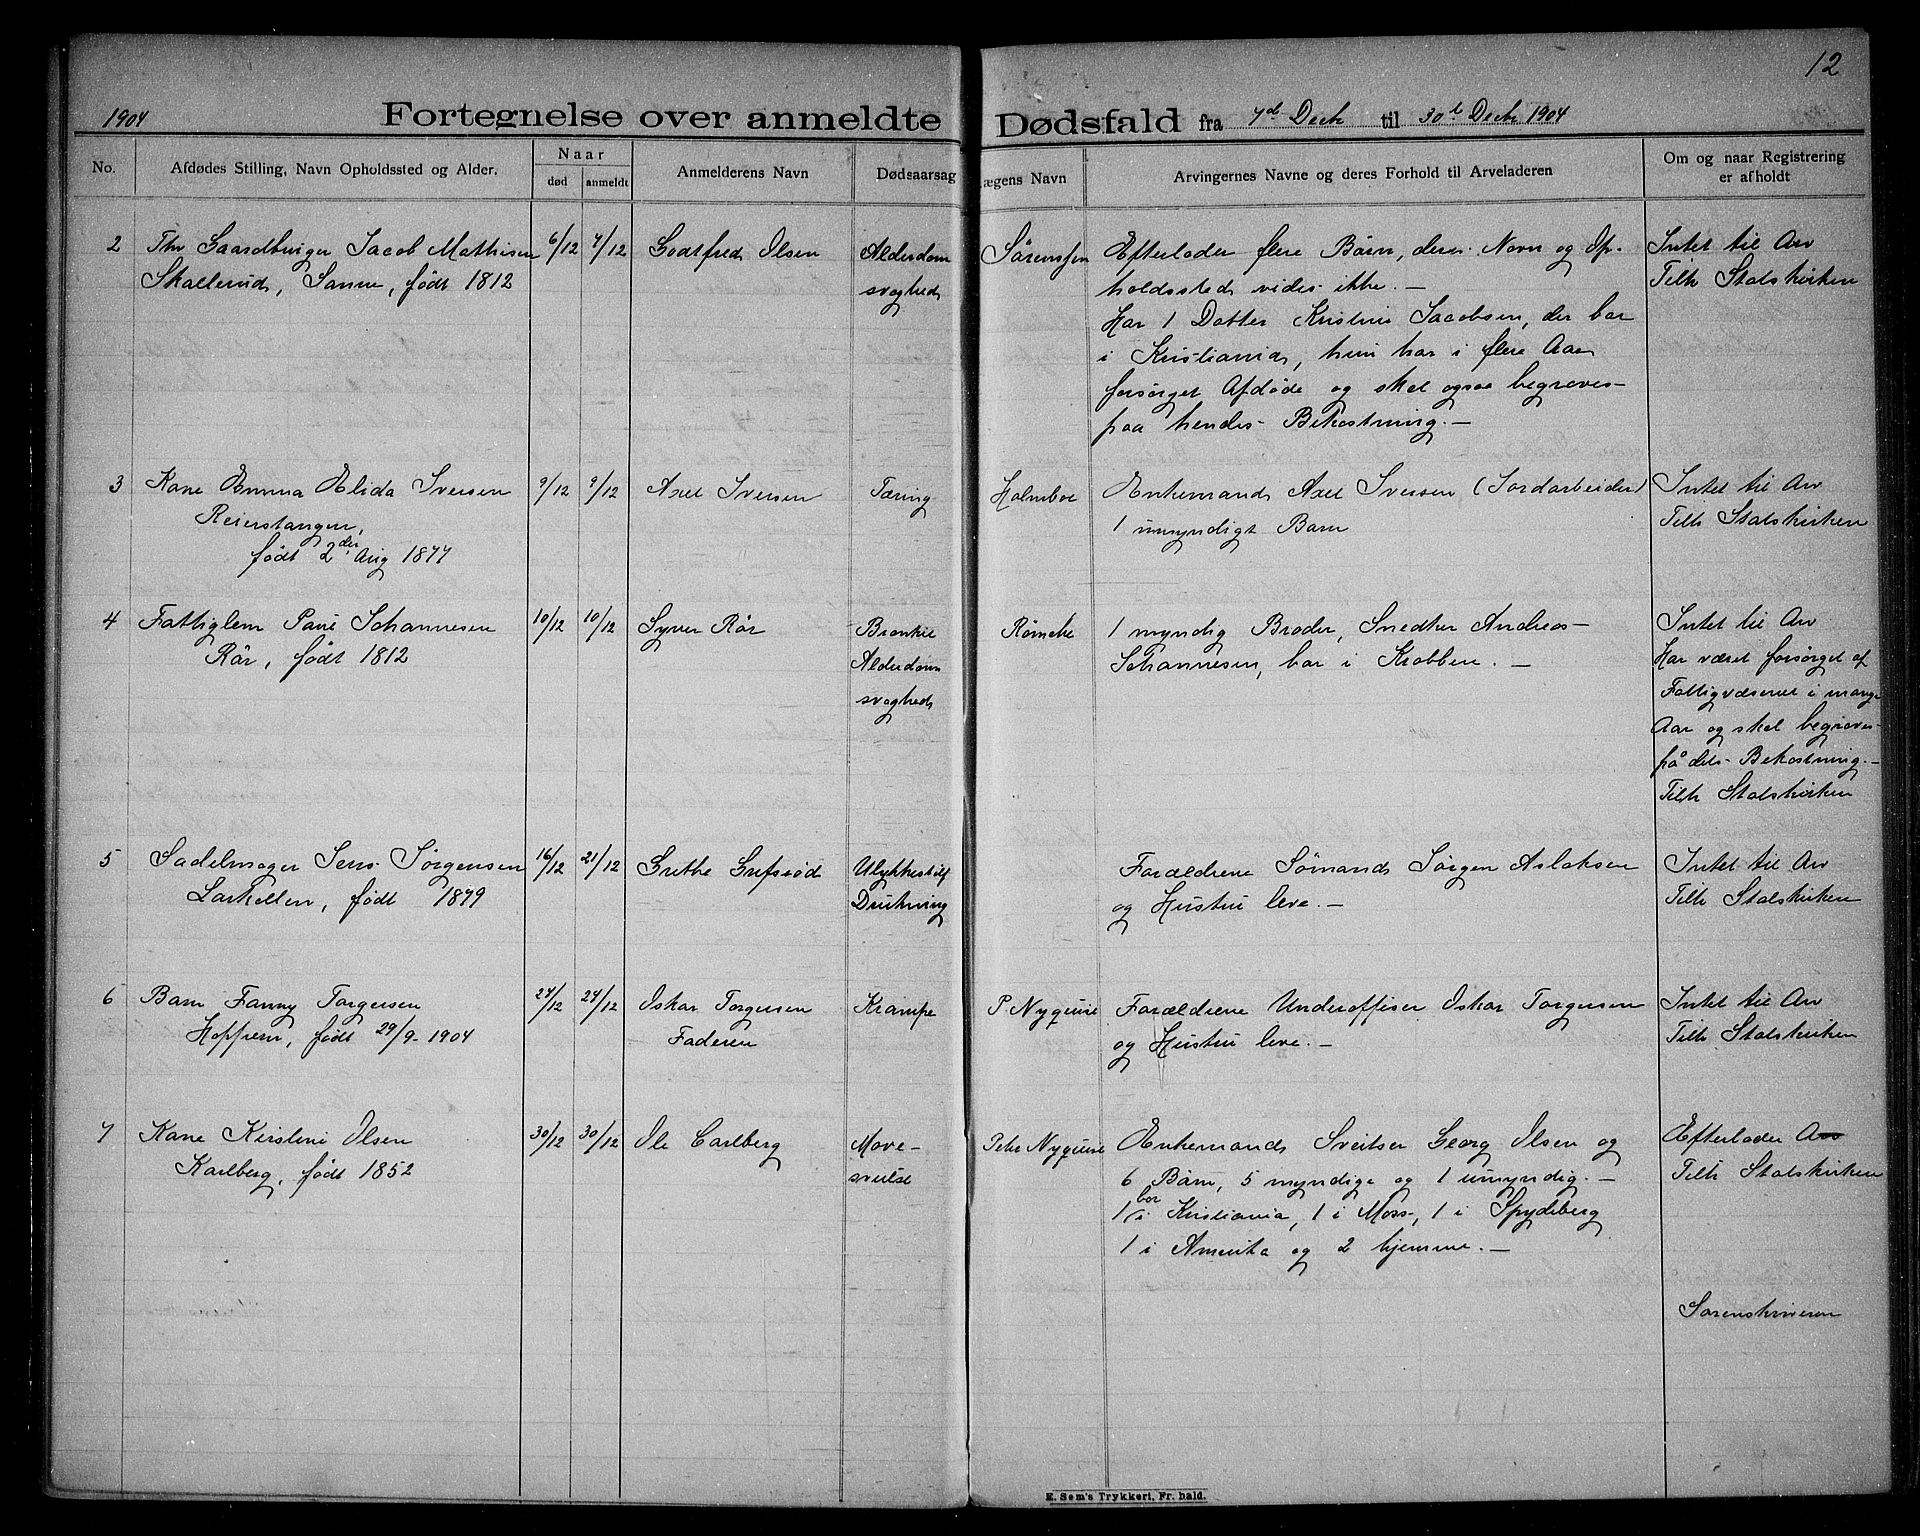 12
1904 Fortegnelse over anmeldte Dødsfald fra 7d Decb til 30te Decb 1904
No. Afdødes Stilling, Navn Opholdssted og Alder. Naar død anmeldt Anmelderens Navn Dødsaarsag Lægens Navn Arvingernes Navne og deres Forhold til Arveladeren Om og naar Registrering er afholdt
2 Fhv Gaardbruger Jacob Mathisen 6/12 7/12 Godtfred Olsen Alderdom Sørenssen Efterlader flere Børn, deres Navn og Op- Intet til Arv
Skallerud, Sanne, født 1812 svaghed holdssted vides ikke. — Tilh Statskirken
Har 1 Datter Kristine Jacobsen, der bor
i Kristiania, hun har i flere Aar
forsørget Afdøde og skal ogsaa begraves
paa hendes Bekostning. —
3 Kone Emma Elida Iversen 9/12 9/12 Axel Iversen Tæring Holmboe Enkemand Axel Iversen (Jordarbeider) Intet til Arv
Reierstangen, 1 umyndigt Barn Tilh Statskirken
født 2den Aug 1877
4 Fattiglem Poul Johannesen 10/12 10/12 Syver Rør Bronkit Rømcke 1 myndig Broder, Snedker Andreas Intet til Arv
Rør, født 1812 Alderdoms Johannesen, bor i Krobben. — Har været forsørget af
svaghed Fattigvæsenet i mange
Aar og skal begraves
på dets Bekostning. —
Tilh Statskirken
5 Sadelmager Jens Jørgensen 16/12 21/12 Grethe Gufsrød Ulykkestilf Forældrene Sømand Jørgen Aslaksen Intet til Arv
Larkollen, født 1879 Drukning og Hustru leve. — Tilh Statskirken
6 Barn Fanny Torgersen 24/12 24/12 Oskar Torgersen Krampe P Nyquist Forældrene Underoffiser Oskar Torgersen Intet til Arv
Hoppern, født 29/9 - 1904 Faderen og Hustru leve. — Tilh Statskirken
7 Kone Kirstine Olsen 30/12 30/12 Ole Carlberg Mave- Peter Nyquist Enkemand Sveitser Georg Olsen og Efterlader Arv
Karlberg, født 1852 svulst 6 Børn, 5 myndige og 1 umyndig. — Tilh Statskirken
1 bor i Kristiania, 1 i Moss, 1 i Spydeberg
1 i Amerika og 2 hjemme. —
Sorenskriveren
E. Sem's Trykkeri, Fr. hald.